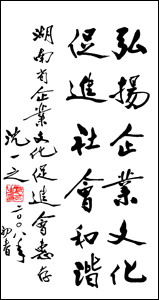 弘揚企業文化
促進社會和諧
湖南省企業文化促進會惠存
沈一之
二〇〇八年
初春